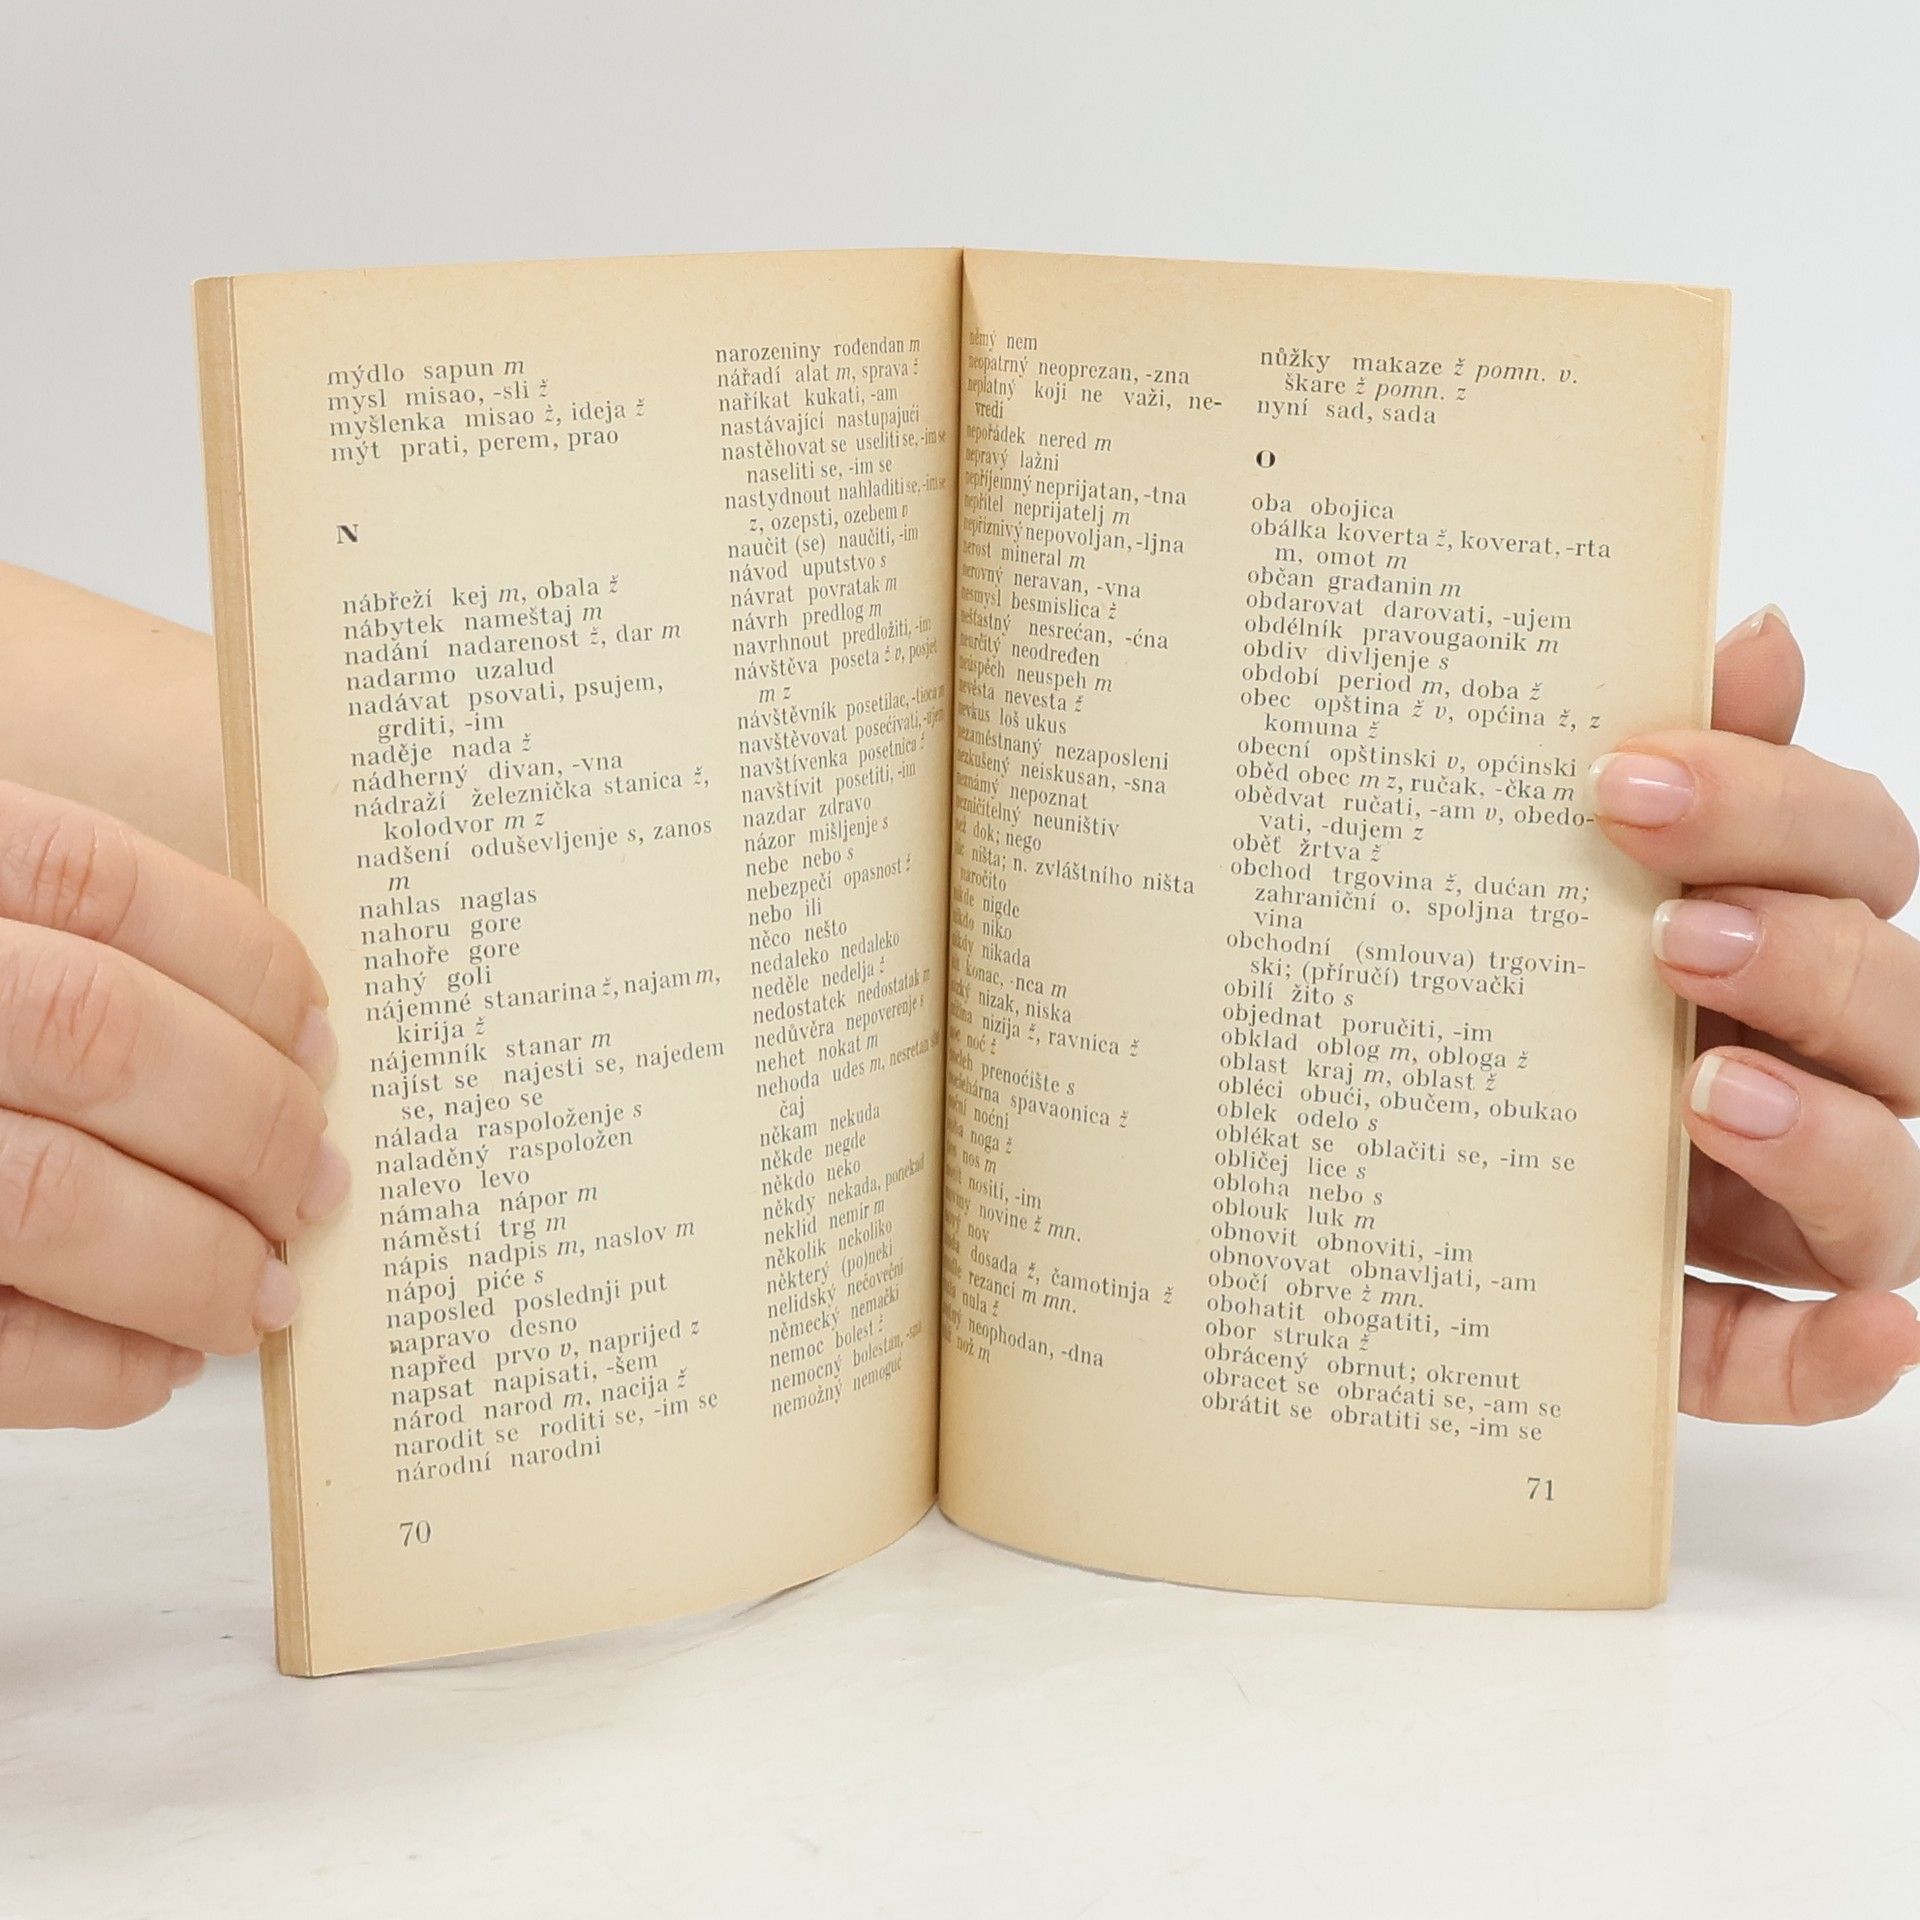 mýdlo sapun m
mysl misao, -sli ž
myšlenka misao ž, ideja ž
mýt prati, perem, prao
N
nábřeží kej m, obala ž
nábytek nameštaj m
nadání nadarenost ž, dar m
nadarmo uzalud
nadávat psovati, psujem,
grditi, -im
naděje nada ž
nádherný divan, -vna
nádraží železnička stanica ž,
kolodvor m z
nadšení oduševljenje s, zanos
m
nahlas naglas
nahoru gore
nahoře gore
nahý goli
nájemné stanarina ž, najam m,
kirija ž
nájemník stanar m
najíst se najesti se, najedem
se, najeo se
nálada raspoloženje s
naladěný raspoložen
nalevo levo
námaha nápor m
náměstí trg m
nápis nadpis m, naslov m
nápoj piće s
naposled poslednji put
napravo desno
napřed prvo v, naprijed z
napsat napisati, -šem
národ narod m, nacija ž
narodit se roditi se, -im se
národní narodni
70
narozeniny rođendan m
nářadí alat m, sprava ž
naříkat kukati, -am
nastávající nastupajući
nastěhovat se useliti se, -im se
naseliti se, -im se
nastydnout nahladiti se, -im se
z, ozepsti, ozebem v
naučit (se) naučiti, -im
návod uputstvo s
návrat povratak m
návrh predlog m
navrhnout predložiti, -im
návštěva poseta ž v, posjet
m z
návštěvník posetilac, -tioca m
navštěvovat posećivati, -ujem
navštívenka posetnica ž
navštívit posetiti, -im
nazdar zdravo
názor mišljenje s
nebe nebo s
nebezpečí opasnost ž
nebo ili
něco nešto
nedaleko nedaleko
neděle nedelja ž
nedostatek nedostatak m
nedůvěra nepoverenje s
nehet nokat m
nehoda udes m, nesretan slu
čaj
někam nekuda
někde negde
někdo neko
někdy nekada, ponekad
neklid nemir m
několik nekoliko
některý (po)neki
nelidský nečovečni
německý nemački
nemoc bolest ž
nemocný bolestan, -sna
nemožný nemoguć
němý nem
neopatrný neoprezan, -zna
neplatný koji ne važi, ne-
vredi
nepořádek nered m
nepravý lažni
nepříjemný neprijatan, -tna
nepřítel neprijatelj m
nepříznivý nepovoljan, -ljna
nerost mineral m
nerovný neravan, -vna
nesmysl besmislica ž
nešťastný nesrećan, -ćna
neurčitý neodređen
neúspěch neuspeh m
nevěsta nevesta ž
nevkus loš ukus
nezaměstnaný nezaposleni
nezkušený neiskusan, -sna
neznámý nepoznat
nezničitelný neuništiv
než dok; nego
nic ništa; n. zvláštního ništa
naročito
nikde nigde
nikdo niko
nikdy nikada
konac, -nca m
nízký nizak, niska
nížina nizija ž, ravnica ž
noc noć ž
nocleh prenoćište s
noclehárna spavaonica ž
noční noćni
noha noga ž
nos nos m
nosit nositi, -im
noviny novine ž mn.
nový nov
nuda dosada ž, čamotinja ž
nudle rezanci m mn.
nula ž
neophodan, -dna
nůž nož m
nůžky makaze ž pomn. v.
škare ž pomn. z
nyní sad, sada
O
oba obojica
obálka koverta ž, koverat, -rta
m, omot m
občan građanin m
obdarovat darovati, -ujem
obdélník pravougaonik m
obdiv divljenje s
období period m, doba ž
obec opština ž v, općina ž, z
komuna ž
obecní opštinski v, općinski
oběd obec m z, ručak, -čka m
obědvat ručati, -am v, obedo-
vati, -dujem z
oběť žrtva ž
obchod trgovina ž, dućan m;
zahraniční o. spoljna trgo-
vina
obchodní (smlouva) trgovin-
ski; (příručí) trgovački
obilí žito s
objednat poručiti, -im
obklad oblog m, obloga ž
oblast kraj m, oblast ž
obléci obući, obučem, obukao
oblek odelo s
oblékat se oblačiti se, -im se
obličej lice s
obloha nebo s
oblouk luk m
obnovit obnoviti, -im
obnovovat obnavljati, -am
obočí obrve ž mn.
obohatit obogatiti, -im
obor struka ž
obrácený obrnut; okrenut
obracet se obraćati se, -am se
obrátit se obratiti se, -im se
71